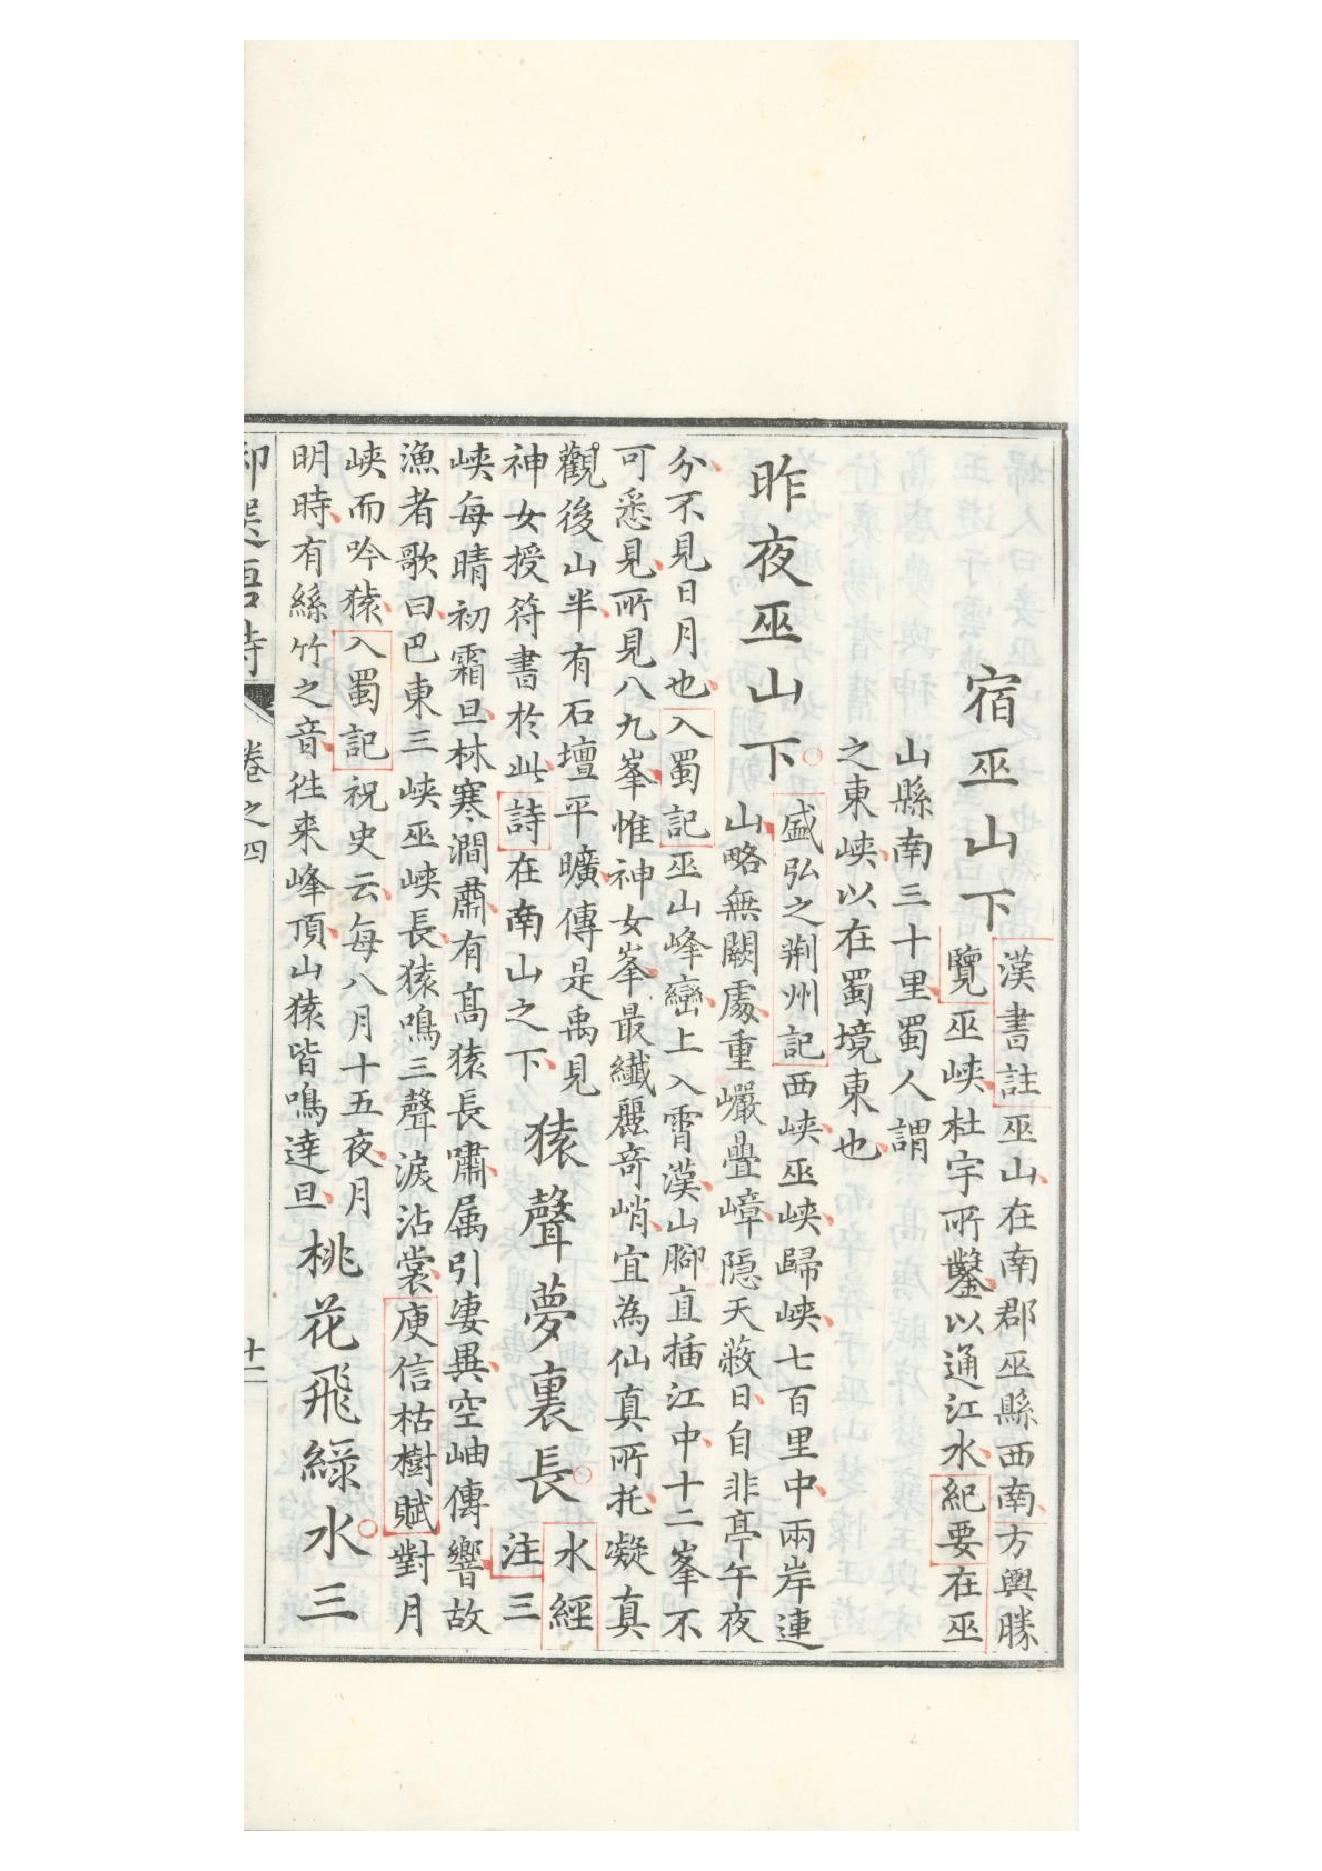 宿巫山下
漢書註巫山在南郡巫縣西南方輿勝
覽巫峽杜宇所鑿以通江水紀要在巫
山縣南三十里蜀人謂
之東峽以在蜀境東也
昨夜巫山下
盛弘之荆州記西峽巫峽歸峽七百里中兩岸連
山略無闕處重巗疊嶂隱天蔽日自非亭午夜
分不見日月也入蜀記巫山峰巒上入霄漢山腳直插江中十二峯不
可悉見所見八九峯惟神女峯最纖麗奇峭宜為仙真所托凝真
觀後山半有石壇平曠傳是禹見
神女授符書於此詩在南山之下
猿聲夢裏長
水經
注三
峽每晴初霜旦林寒澗肅有高猿長嘯属引淒異空岫傳響故
漁者歌曰巴東三峽巫峽長猿鳴三聲淚沾裳庾信枯樹賦對月
峽而吟猿入蜀記祝史云每八月十五夜月
明時有絲竹之音徃来峰頂山猿皆鳴達旦
桃花飛綠水三
卷之四
十二